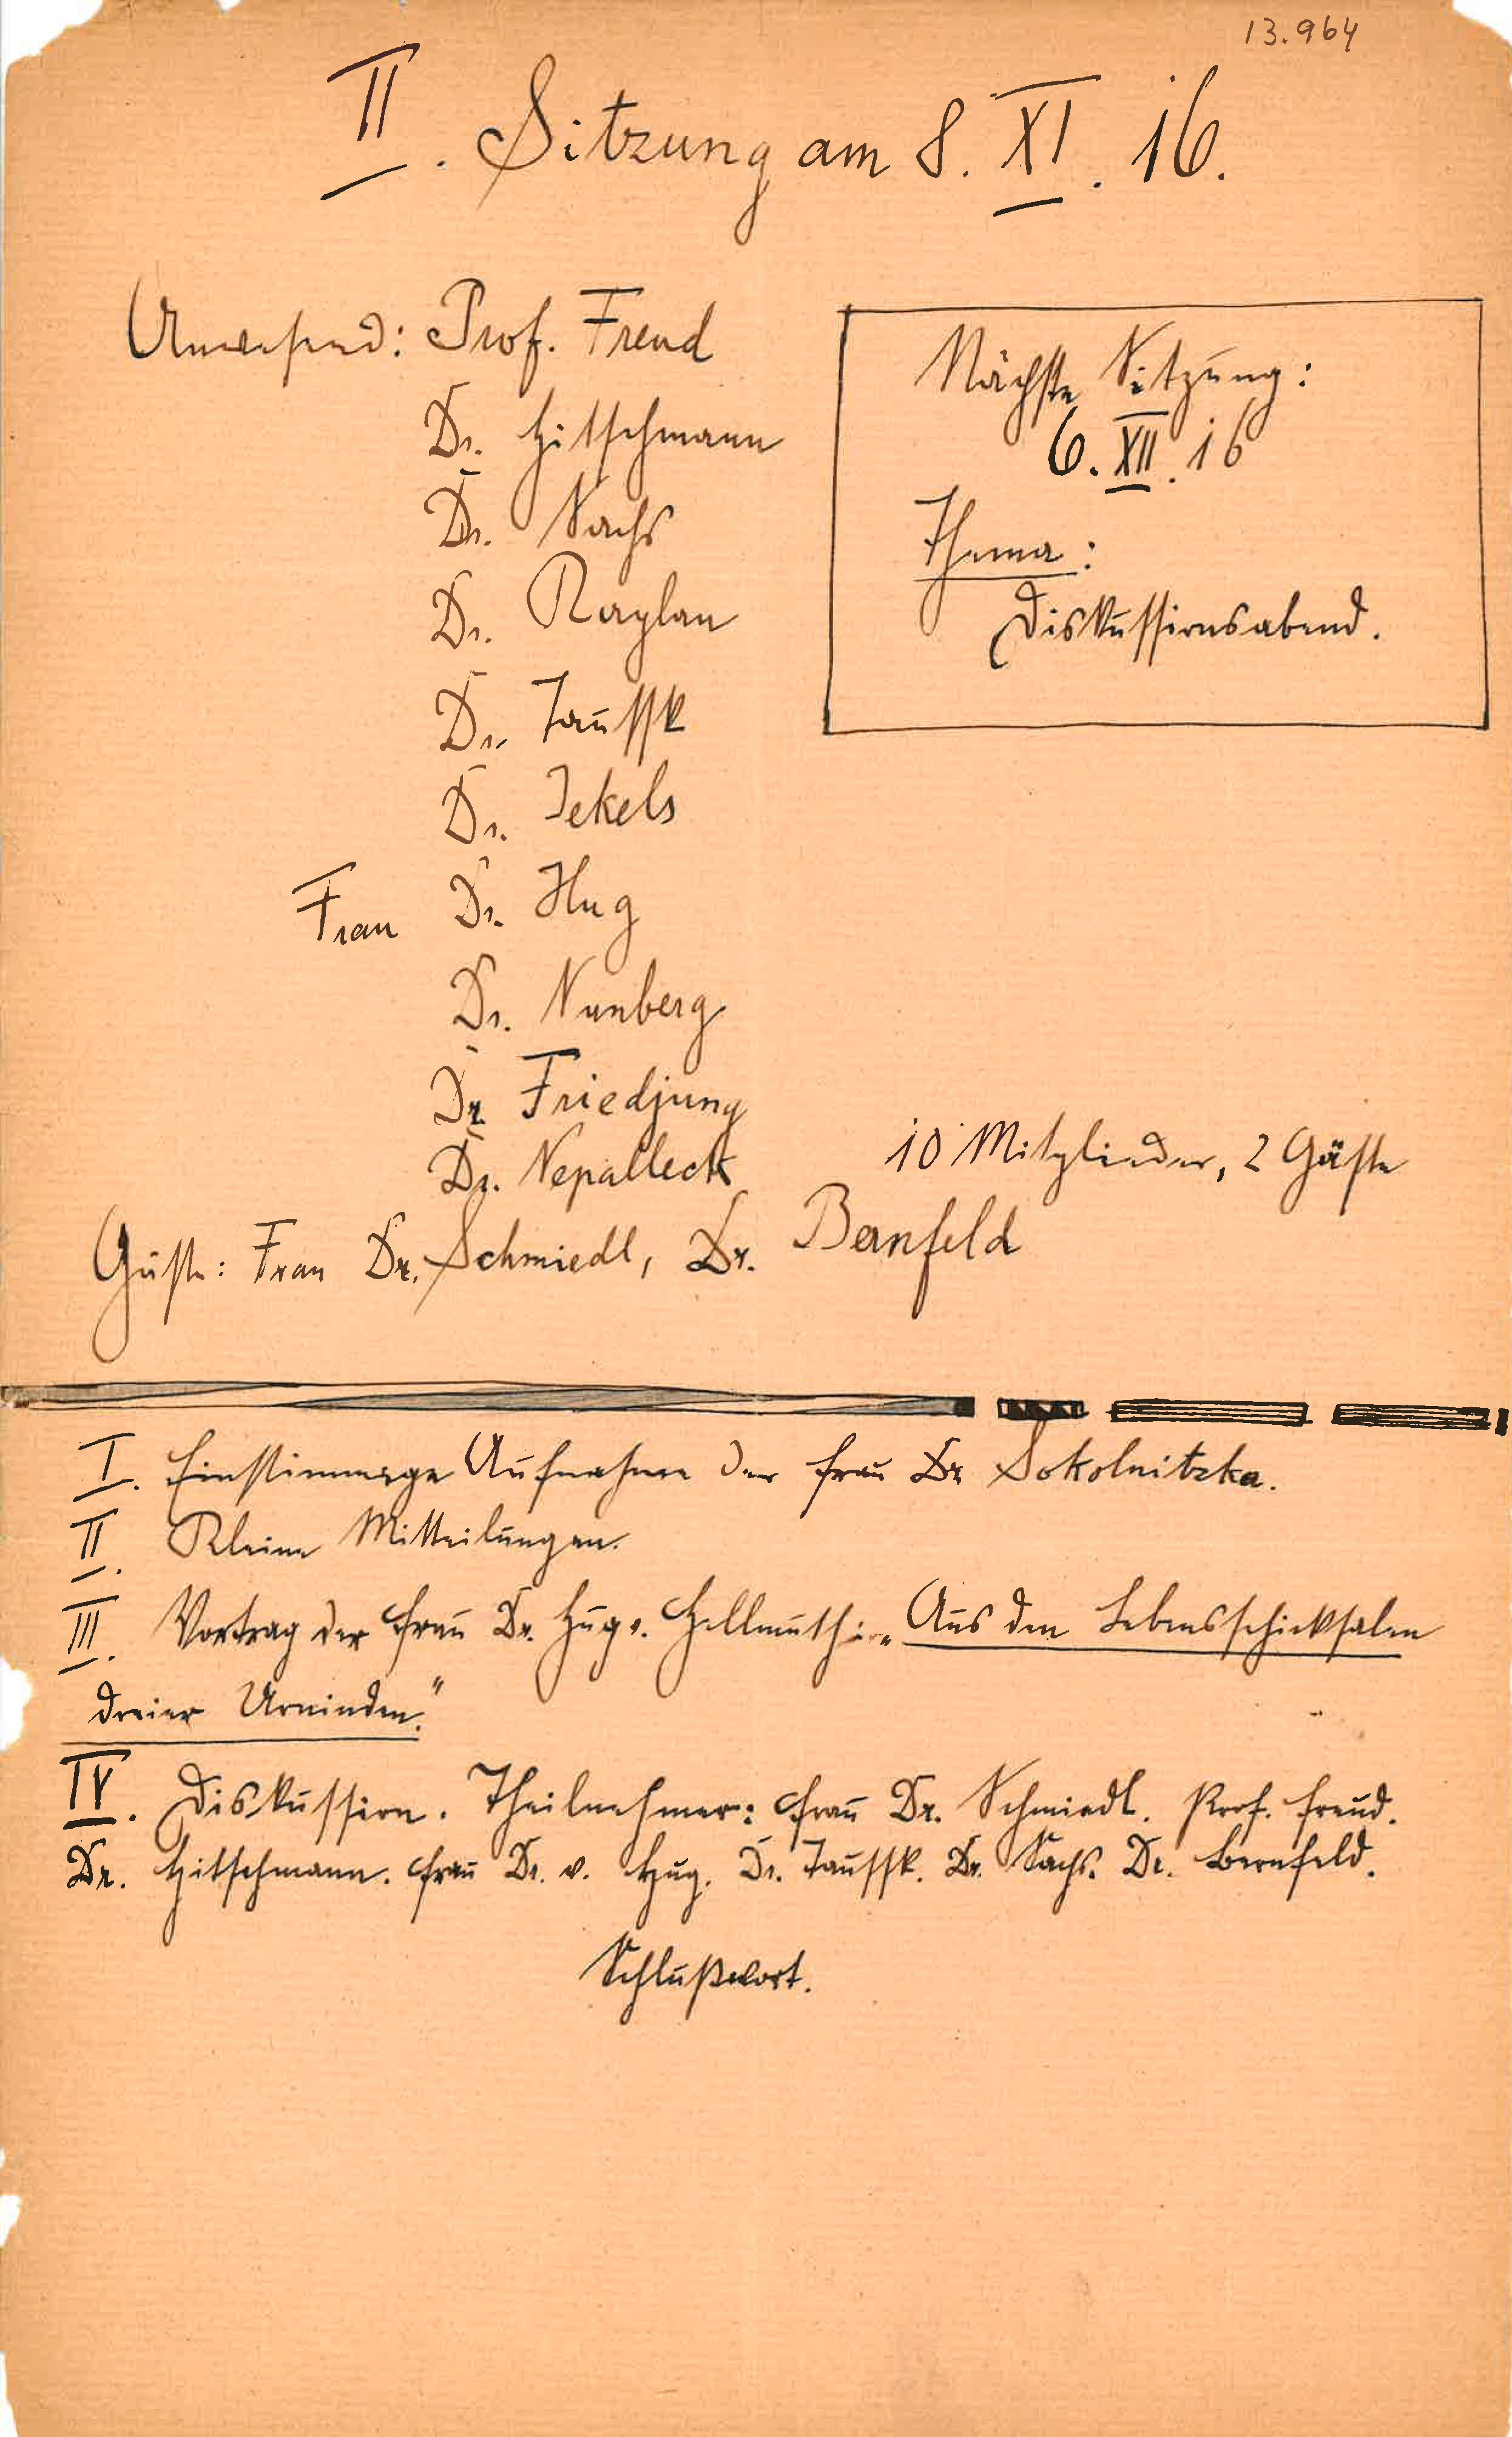 13.964
II. Sitzung am 8. XI. 16.
Anwesend: Prof. Freud
Dr. Hitschmann
Dr. Sachs
Dr.
Dr. Taussk
Dr. Jekels
Frau Dr. Hug
Dr. Nunberg
Dr. Friedjung
Dr. Nepalleck
Nächste Sitzung:
6. XII. 16
Thema:
Diskussionsabend.
10 Mitglieder, 2 Gäste
Gäste: Frau Dr. Schmiedl, Dr. Bernfeld
I. Einstimmige Aufnahme der Frau Dr Sokolnitzka.
II. Kleine Mitteilungen.
III. Vortrag der Frau Dr. Hug v. Hellmuth: „Aus den Lebensschicksalen
dreier Urninden."
IV. Diskussion. Theilnehmer: Frau Dr. Schmiedl. Prof. Freud.
Dr. Hitschmann. Frau Dr. v. Hug. Dr. Taussk. Dr. Sachs. Dr. Bernfeld.
Schlußwort.